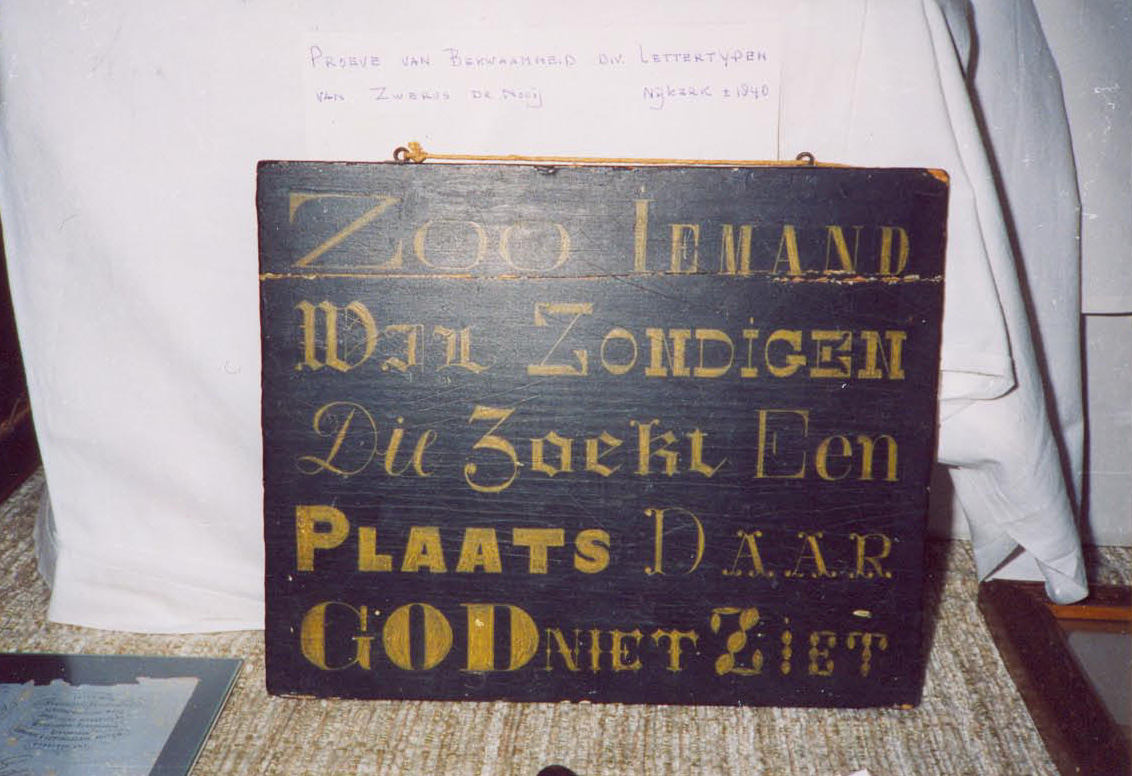 PROEVE VAN BEKWAAMHEID DIV. LETTERTYPEN
VAN ZWERUS DE NOOIJ NIJKERK ± 1840
ZOO IEMAND
WIL ZONDIGEN
Die Zoekt Een
PLAATS DAAR
GOD NIET ZIET